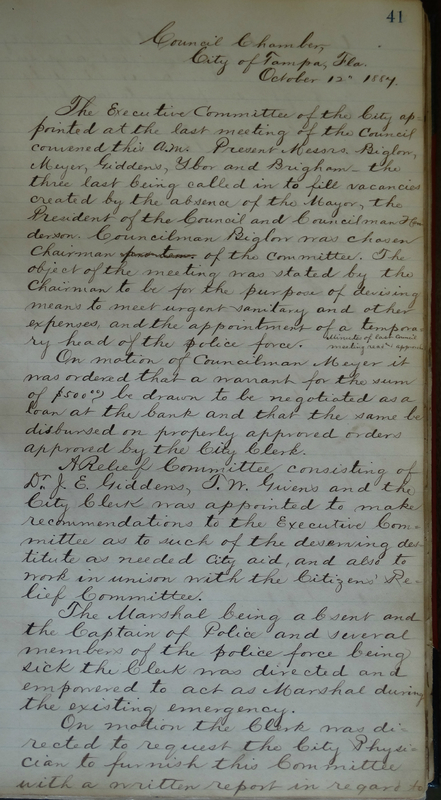 41
Council Chamber,
City of Tampa, Fla.
October 12th 1887.
The Executive Committee of the City ap-
pointed at the last meeting of the Council
convened this A.M. Present Messrs. Biglow,
Meyer, Giddens, Ybor and Brigham - the
three last being called in to fill vacancies
created by the absence of the Mayor, the
President of the Council and Councilman Hen-
derson. Councilman Biglow was chosen
Chairman pro tem. of the committee. The
object of the meeting was stated by the
Chairman to be for the purpose of devising
means to meet urgent sanitary and other
expenses, and the appointment of a tempora-
ry head of the police force. Minutes of last
meeting read
On motion of Councilman Meyer it
was ordered that a warrant for the sum
of $500.00 be drawn to be negotiated as a
loan at the bank and that the same be
disbursed on properly approved orders
approved by the City Clerk.
A Relief Committee consisting of
Dr. J. E. Giddens, T. W. Givens and the
City Clerk was appointed to make
recommendations to the Executive Com-
mittee as to such of the deserving des-
titute as needed City aid, and also to
work in unison with the Citizens' Re-
lief Committee.
The Marshal being absent and
the Captain of Police and several
members of the police force being
sick the Clerk was directed and
empowered to act as Marshal during
the existing emergency.
On motion the Clerk was di-
rected to request the City Physi-
cian to furnish this Committee
with a written report in regard to